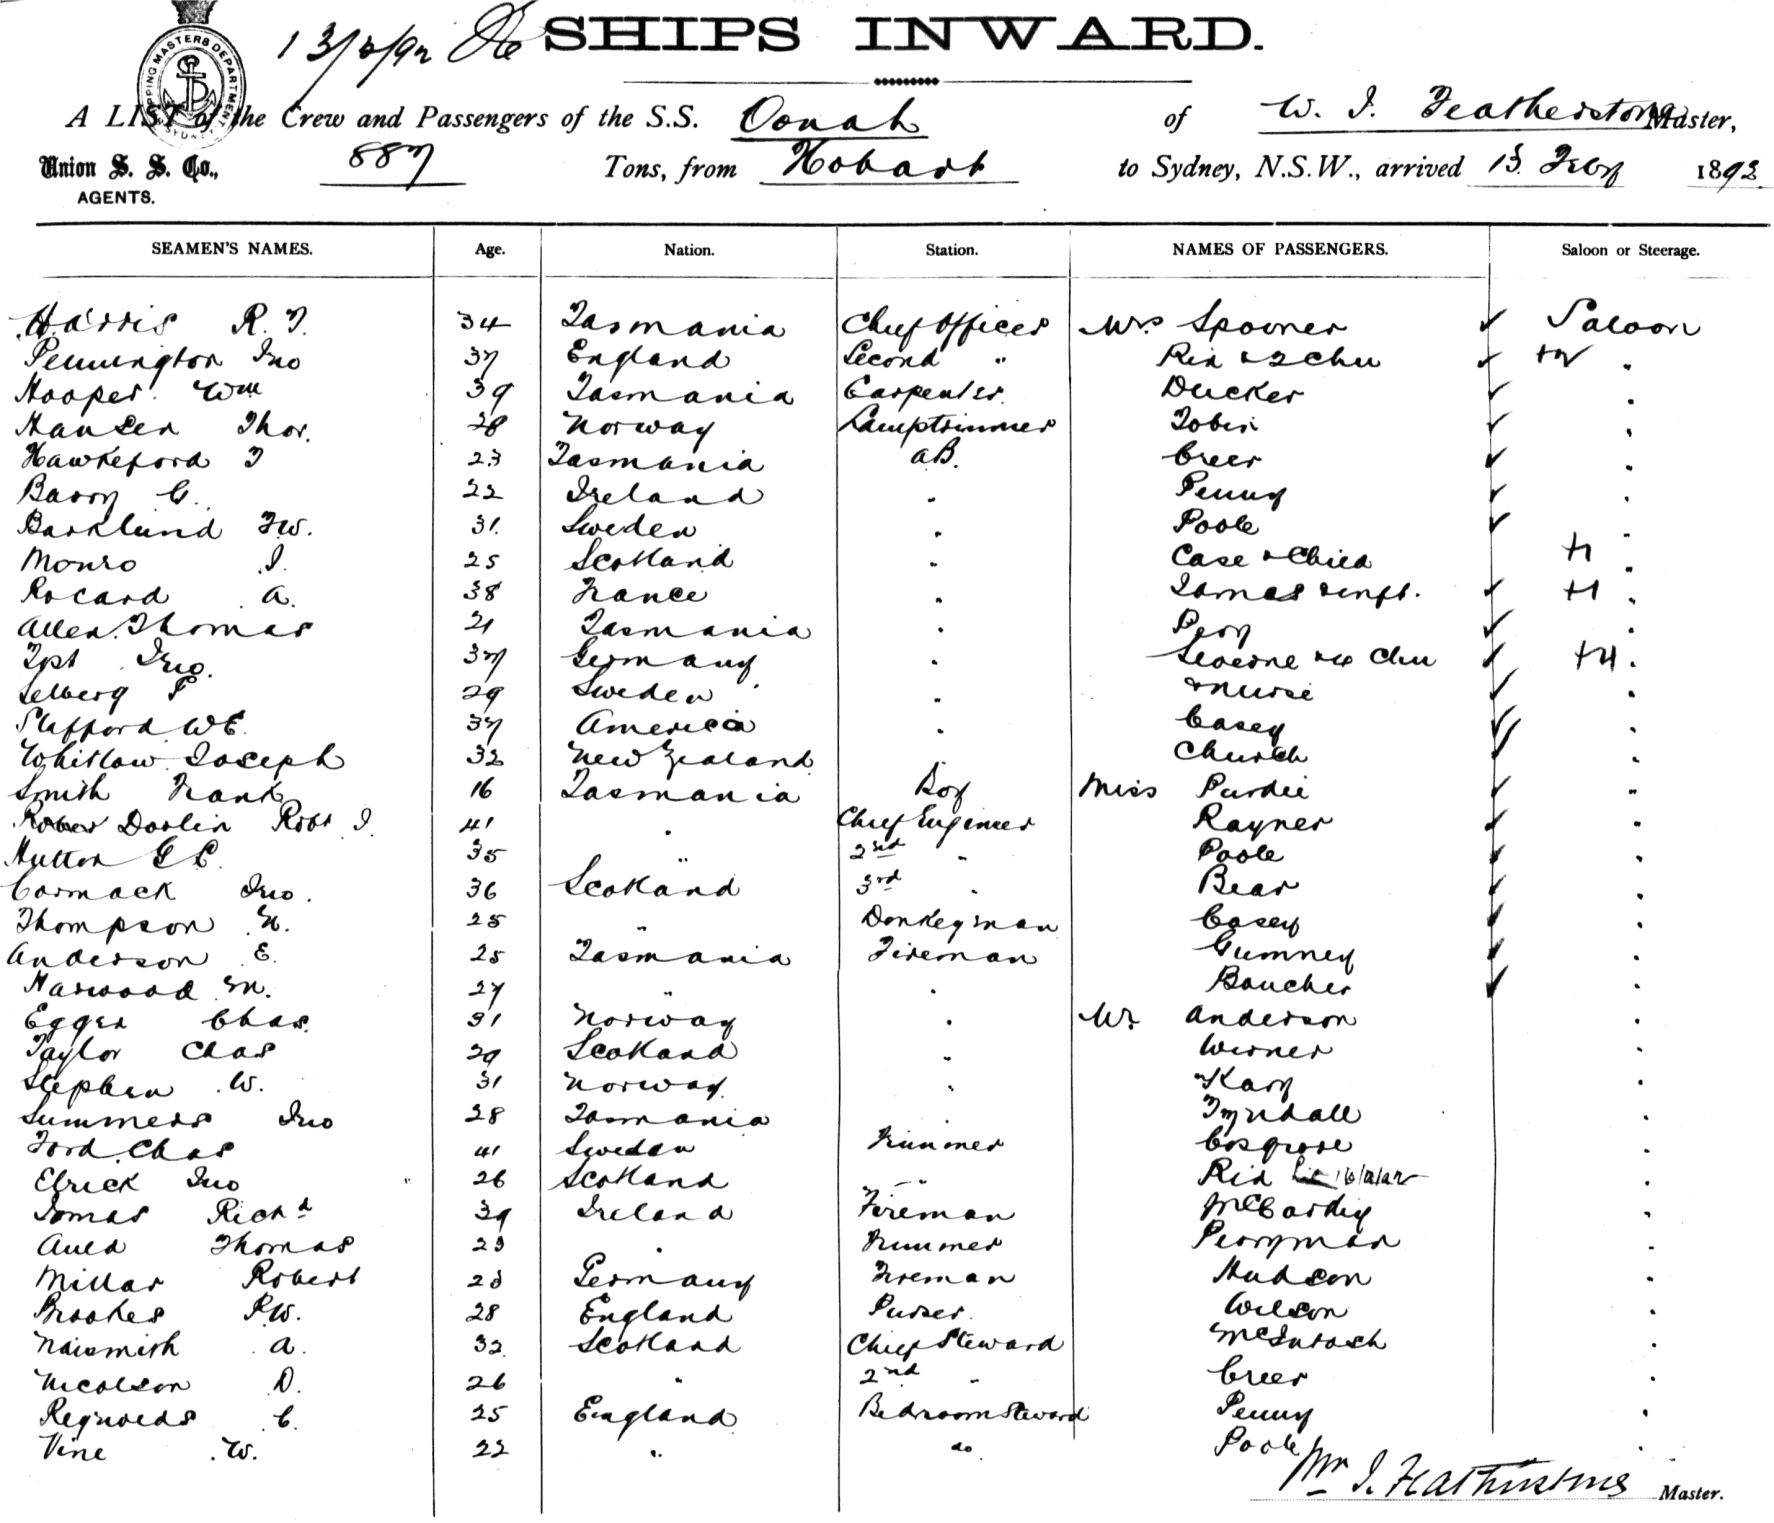 13/2/92
SHIPS INWARD.
SHIPPING MASTERS DEPARTMENT SYDNEY
A LIST of the Crew and Passengers of the S.S. Oonah of W. J. Featherstone Master,
Union S. S. Co., AGENTS. 887 Tons, from Hobart to Sydney, N.S.W., arrived 13 Feby 1892
SEAMEN'S NAMES. Age. Nation. Station. NAMES OF PASSENGERS. Saloon or Steerage.
Harris R. J. 34 Tasmania Chief Officer Mrs Spooner ✓ Saloon
Pennington Jno 37 England Second " Rix & 2 Chn ✓ +2 "
Hooper Wm 39 Tasmania Carpenter Ducker ✓ "
Hansen Thor. 28 Norway Lamptrimmer Tobin ✓ "
Hawkeford J 23 Tasmania AB. Creer ✓ "
Barry C. 22 Ireland " Penny ✓ "
Barklund F.W. 31 Sweden " Poole ✓ "
Monro J. 25 Scotland " Case & Child +1 "
Rocard A. 38 France " Tomas & inft. ✓ +1 "
Allen Thomas 21 Tasmania " ✓
Jno. 37 Germany " & 4 Chn ✓ +4 "
Selberg F 29 Sweden " & nurse ✓ "
Stafford W E. 37 America " Casey ✓ "
Whitlow Joseph 32 New Zealand Church ✓ "
Smith Frank 16 Tasmania Boy Miss Purdie ✓ "
Dorlin Robt J. 41 " Chief Engineer Rayner ✓ "
Hutton G E. 35 " 2nd " Poole ✓ "
Cormack Jno. 36 Scotland 3rd " Bear ✓ "
Thompson N. 25 " Donkeyman Casey ✓ "
Anderson E. 25 Tasmania Fireman Gumney ✓ "
Harwood M. 27 " " Boucher ✓ "
Eggen Chas. 31 Norway " Mr Anderson "
Taylor Chas 29 Scotland " Werner "
Stephen W. 31 Norway " Kary "
Summers Jno 28 Tasmania " Tyndall "
Ford Chas 41 Sweden Trimmer Cosgrove "
Elrick Jno 26 Scotland " Rix 16/2/92 "
Tomas Richd 39 Ireland Fireman McCarthy "
Auld Thomas 23 " Trimmer Perryman "
Millar Robert 28 Germany Fireman Hudson "
Brookes P.W. 28 England Purser Wilson "
Naismith A. 32 Scotland Chief Steward McIntosh "
Nicolson D. 26 " 2nd " Creer "
Reynolds C. 25 England Bedroom Steward Penny "
Vine W. 22 " do Poole "
Wm J. Featherstone Master.